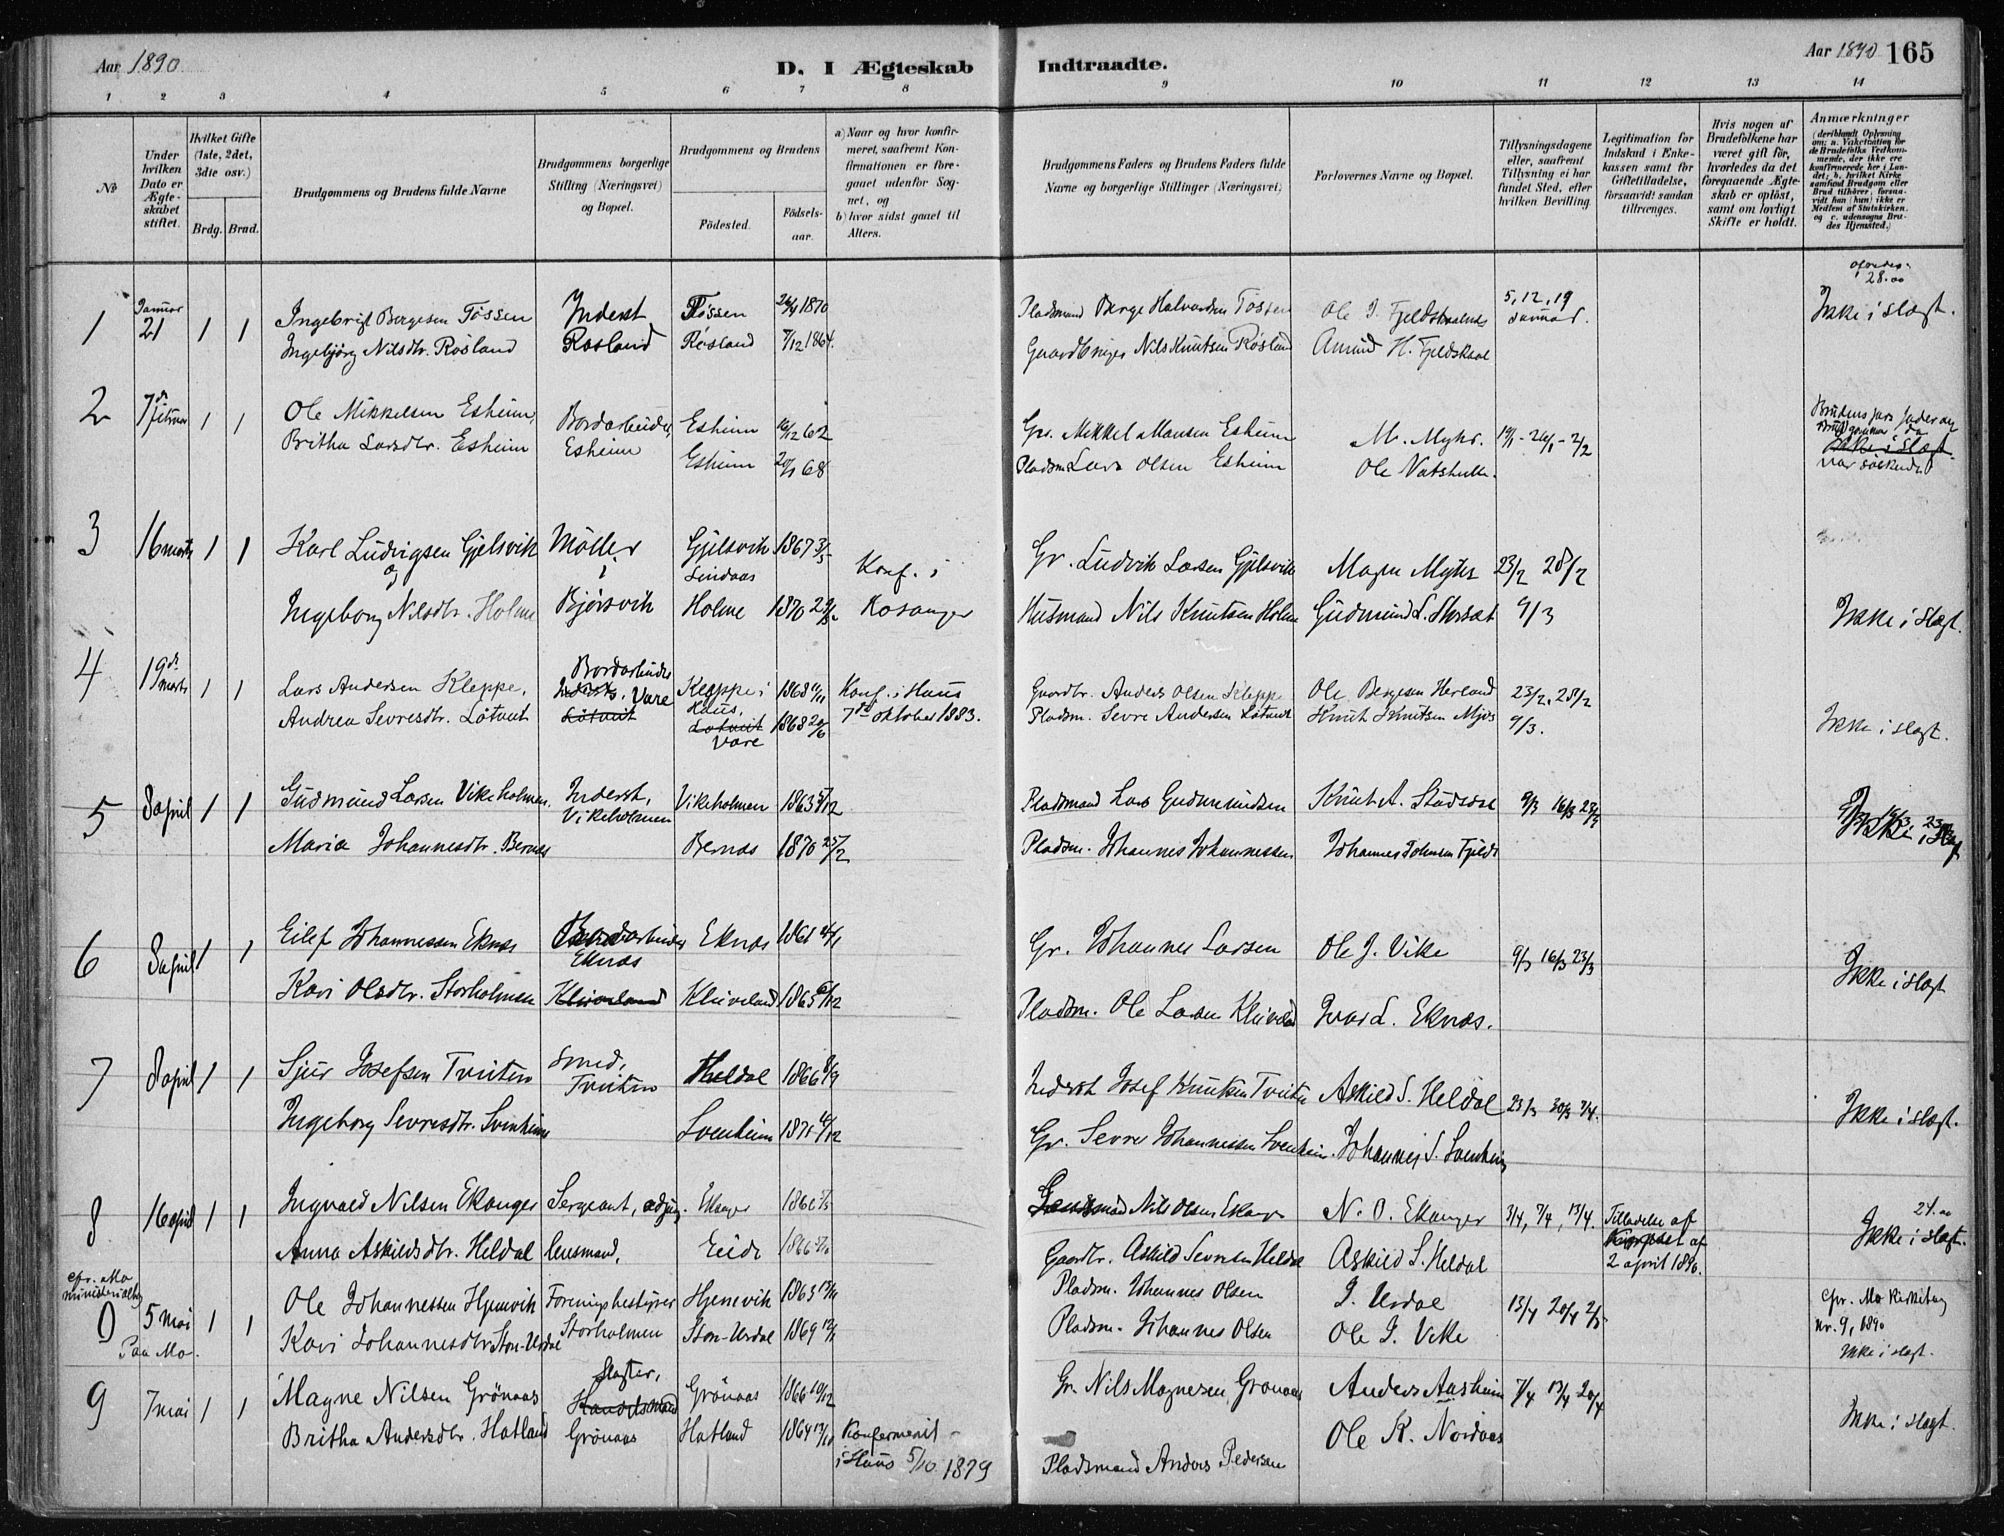 Aar 1890
D. I Ægteskab Indtraadte.
Aar 1890 165
1 2 3 4 5 6 7 8 9 10 11 12 13 14
No
Under hvilken Dato er Ægteskabet stiftet.
Hvilket Gifte (1ste, 2det, 3die osv.)
Brdg. Brud.
Brudgommens og Brudens fulde Navne
Brudgommens borgerlige Stilling (Næringsvei) og Bopæl.
Brudgommens og Brudens
Fødested. Fødselsaar.
a) Naar og hvor konfirmeret, saafremt Konfirmationen er foregaaet udenfor Sognet, og
b) hvor sidst gaaet til Alters.
Brudgommens Faders og Brudens Faders fulde Navne og borgerlige Stillinger (Næringsvei)
Forlovernes Navne og Bopæl.
Tillysningsdagene eller, saafremt Tillysning ei har fundet Sted, efter hvilken Bevilling.
Legitimation for Indskud i Enkekassen samt for Giftetilladelse, forsaavidt saadan tiltrænges.
Hvis nogen af Brudefolkene har været gift før, hvorledes da det foregaaende Ægteskab er opløst, samt om lovligt Skifte er holdt.
Anmærkninger
(deriblandt Oplysning om: a. Vaksination for de Brudefolks Vedkommende, der ikke ere konfirmerede her i Landet; b. hvilket Kirkesamfund Brudgom eller Brud tilhører, forsaavidt han (hun) ikke er Medlem af Statskirken, og c. udensogns Brudes Hjemsted.)
1 Januar 21 1 1 Ingebrigt Bergesen Tøssen Inderst Tøssen 26/4 1870 Pladsmand Berge Halvardsen Tøssen Ole J. 5, 12, 19 Januar. 28.00 Ikke i slægt.
Ingebjørg Nilsdtr. Røsland Røsland Røsland 8/12 1864. Gaardbruger Nils Knutsen Røsland Amund H. Fjeldskaal
2 7de februar 1 1 Ole Mikkelsen Esheim, Bordarbeider, Esheim 16/12 62 Gr. Mikkel Monsen Esheim M. Myhr. 19/1 - 26/1 - 2/2
Britha Larsdtr. Esheim Esheim Esheim 20/1 68 Pladsm. Lars Olsen Esheim Ole Vatshelle.
Ikke i Slægt.
var søskende
3 16 marts 1 1 Karl Ludvigsen Gjelsvik Møller Gjelsvik 1867 3/5 Gr. Ludvik Larsen Gjelsvik Magne Myhr 23/2 28/2
og i Lindaas Konf. i
Ingeborg Nilsdtr. Holme Bjørsvik Holme 1870 Hosanger Husmand Nils Knutsen Holme Gudmund L. Storset 9/3 Ikke i slægt.
4 19de marts 1 1 Lars Andersen Kleppe. Bordarbeider Vare Kleppe i Haus, 1868 Konf. i Haus Gaardbr. Anders Olsen Kleppe Ole Bergesen Herland 23/2, 28/2
Andrea Sevresdtr. Løtveit Løtveit Løtveit Vare 1868 20/6 7de oktober 1883. Pladsm. Sevre Andersen Løtveit Knut Knutsen Mjøs 9/3. Ikke i slægt.
5 8 april 1 1 Gudmund Larsen Vikeholmen. Inderst, Vikeholmen Vikeholmen 1863 Pladsmand Lars Gudmundsen Knut A. Stadset 9/3 16/3 23/3
Maria Johannesdtr. Bernes Bernes 1870 25/2 Pladsm. Johannes Johannessen Johannes Johnsen Ikke i slægt
6 8 april 1 1 Eilef Johannessen Eknæs Bordarbeider Eknæs Eknæs 1861 Gr. Johannes Larsen Ole J. Vike 9/3 16/3 23/3 Ikke i slægt
Kari Olsdtr. Storholmen Kleiveland Kleiveland 1865 6/12 Pladsm. Ole Larsen Kleiveland Ivar L. Eknæs.
7 8 april 1 1 Sjur Josefsen Tveiten Smed, Tveiten Heldal 1866 8/9 Inderst Josef Knutsen Tveiten Askild S. Heldal 23/3 30/3 7/4. Ikke i slægt.
Ingeborg Sevresdtr. Svenheim Svenheim 1871 Gr. Sevre Johannessen Svenheim. Johannes S. Svenheim
8 16 april 1 1 Ingvald Nilsen Ekanger Sergeant, adjg. Ekanger Lensmand Nils Olsen Ekanger N. O. Ekanger 3/4, 7/4, 13/4. Tilladelse af Korpset af 24.00 Ikke i slægt.
Anna Askildsdtr. Heldal lensmand, Eide 1866 Gaardbr. Askild Sevresen Heldal Askild S. Heldal 2 april 1890.
cfr. Mo ministerialbog
0 5 mai 1 1 Ole Johannessen Hjemvik Foreningsbestyrer Hjemvik 1863 Pladsm. Johannes Olsen J. Urdal 13/4 20/4 2/5 cfr. Mo Kirkebog nr. 9, 1890
Paa Mo. Kari Johannesdtr. Ston-Urdal Storholmen Ston-Urdal 1869 Pladsm. Johannes Olsen Ole J. Vike Ikke i slægt.
9 7 mai 1 1 Magne Nilsen Grønaas Slagter, Handelsmand Grønaas 1866 Gr. Nils Magnesen Grønaas Anders Aasheim 7/4 13/4 20/4 Ikke i slægt.
Britha Andersdtr. Hatland Grønaas Hatland 1864 Konfermeret i Haus 5/10 1879 Pladsmand Anders Pedersen Ole K. Nordaas